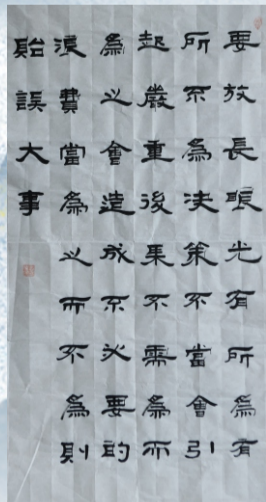 要放長眼光有所為有
所不為決策不當會引
起嚴重後果不需為而
為之會造成不必要的
浪費當為之而不為則
貽誤大事